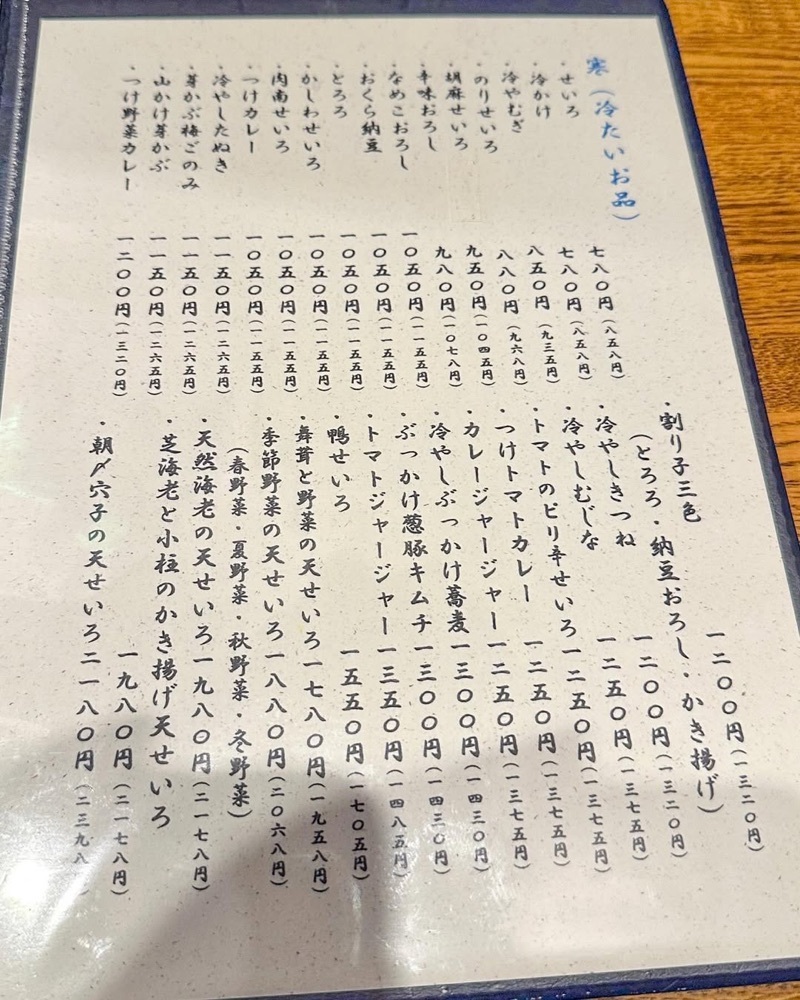 寒（冷たいお品）
・せいろ 七八〇円（八五八円）
・冷かけ 七八〇円（八五八円）
・冷やむぎ 八五〇円（九三五円）
・のりせいろ 八八〇円（九六八円）
・胡麻せいろ 九五〇円（一〇四五円）
・辛味おろし 九八〇円（一〇七八円）
・なめこおろし 一〇五〇円（一一五五円）
・おくら納豆 一〇五〇円（一一五五円）
・とろろ 一〇五〇円（一一五五円）
・かしわせいろ 一〇五〇円（一一五五円）
・肉南せいろ 一〇五〇円（一一五五円）
・つけカレー 一〇五〇円（一一五五円）
・冷やしたぬき 一一五〇円（一二六五円）
・芽かぶ梅ごのみ 一一五〇円（一二六五円）
・山かけ芽かぶ 一一五〇円（一二六五円）
・つけ野菜カレー 一二〇〇円（一三二〇円）
・割り子三色 一二〇〇円（一三二〇円）
（とろろ・納豆おろし・かき揚げ）
・冷やしきつね 一二〇〇円（一三二〇円）
・冷やしむじな 一二五〇円（一三七五円）
・トマトのピリ辛せいろ 一二五〇円（一三七五円）
・つけトマトカレー 一二五〇円（一三七五円）
・カレージャージャー 一二五〇円（一三七五円）
・冷やしぶっかけ蕎麦 一三〇〇円（一四三〇円）
・ぶっかけ葱豚キムチ 一三〇〇円（一四三〇円）
・トマトジャージャー 一三五〇円（一四八五円）
・鴨せいろ 一五五〇円（一七〇五円）
・舞茸と野菜の天せいろ 一七八〇円（一九五八円）
・季節野菜の天せいろ 一八八〇円（二〇六八円）
（春野菜・夏野菜・秋野菜・冬野菜）
・天然海老の天せいろ 一九八〇円（二一七八円）
・芝海老と小柱のかき揚げ天せいろ 一九八〇円（二一七八円）
・朝〆穴子の天せいろ 二一八〇円（二三九八）